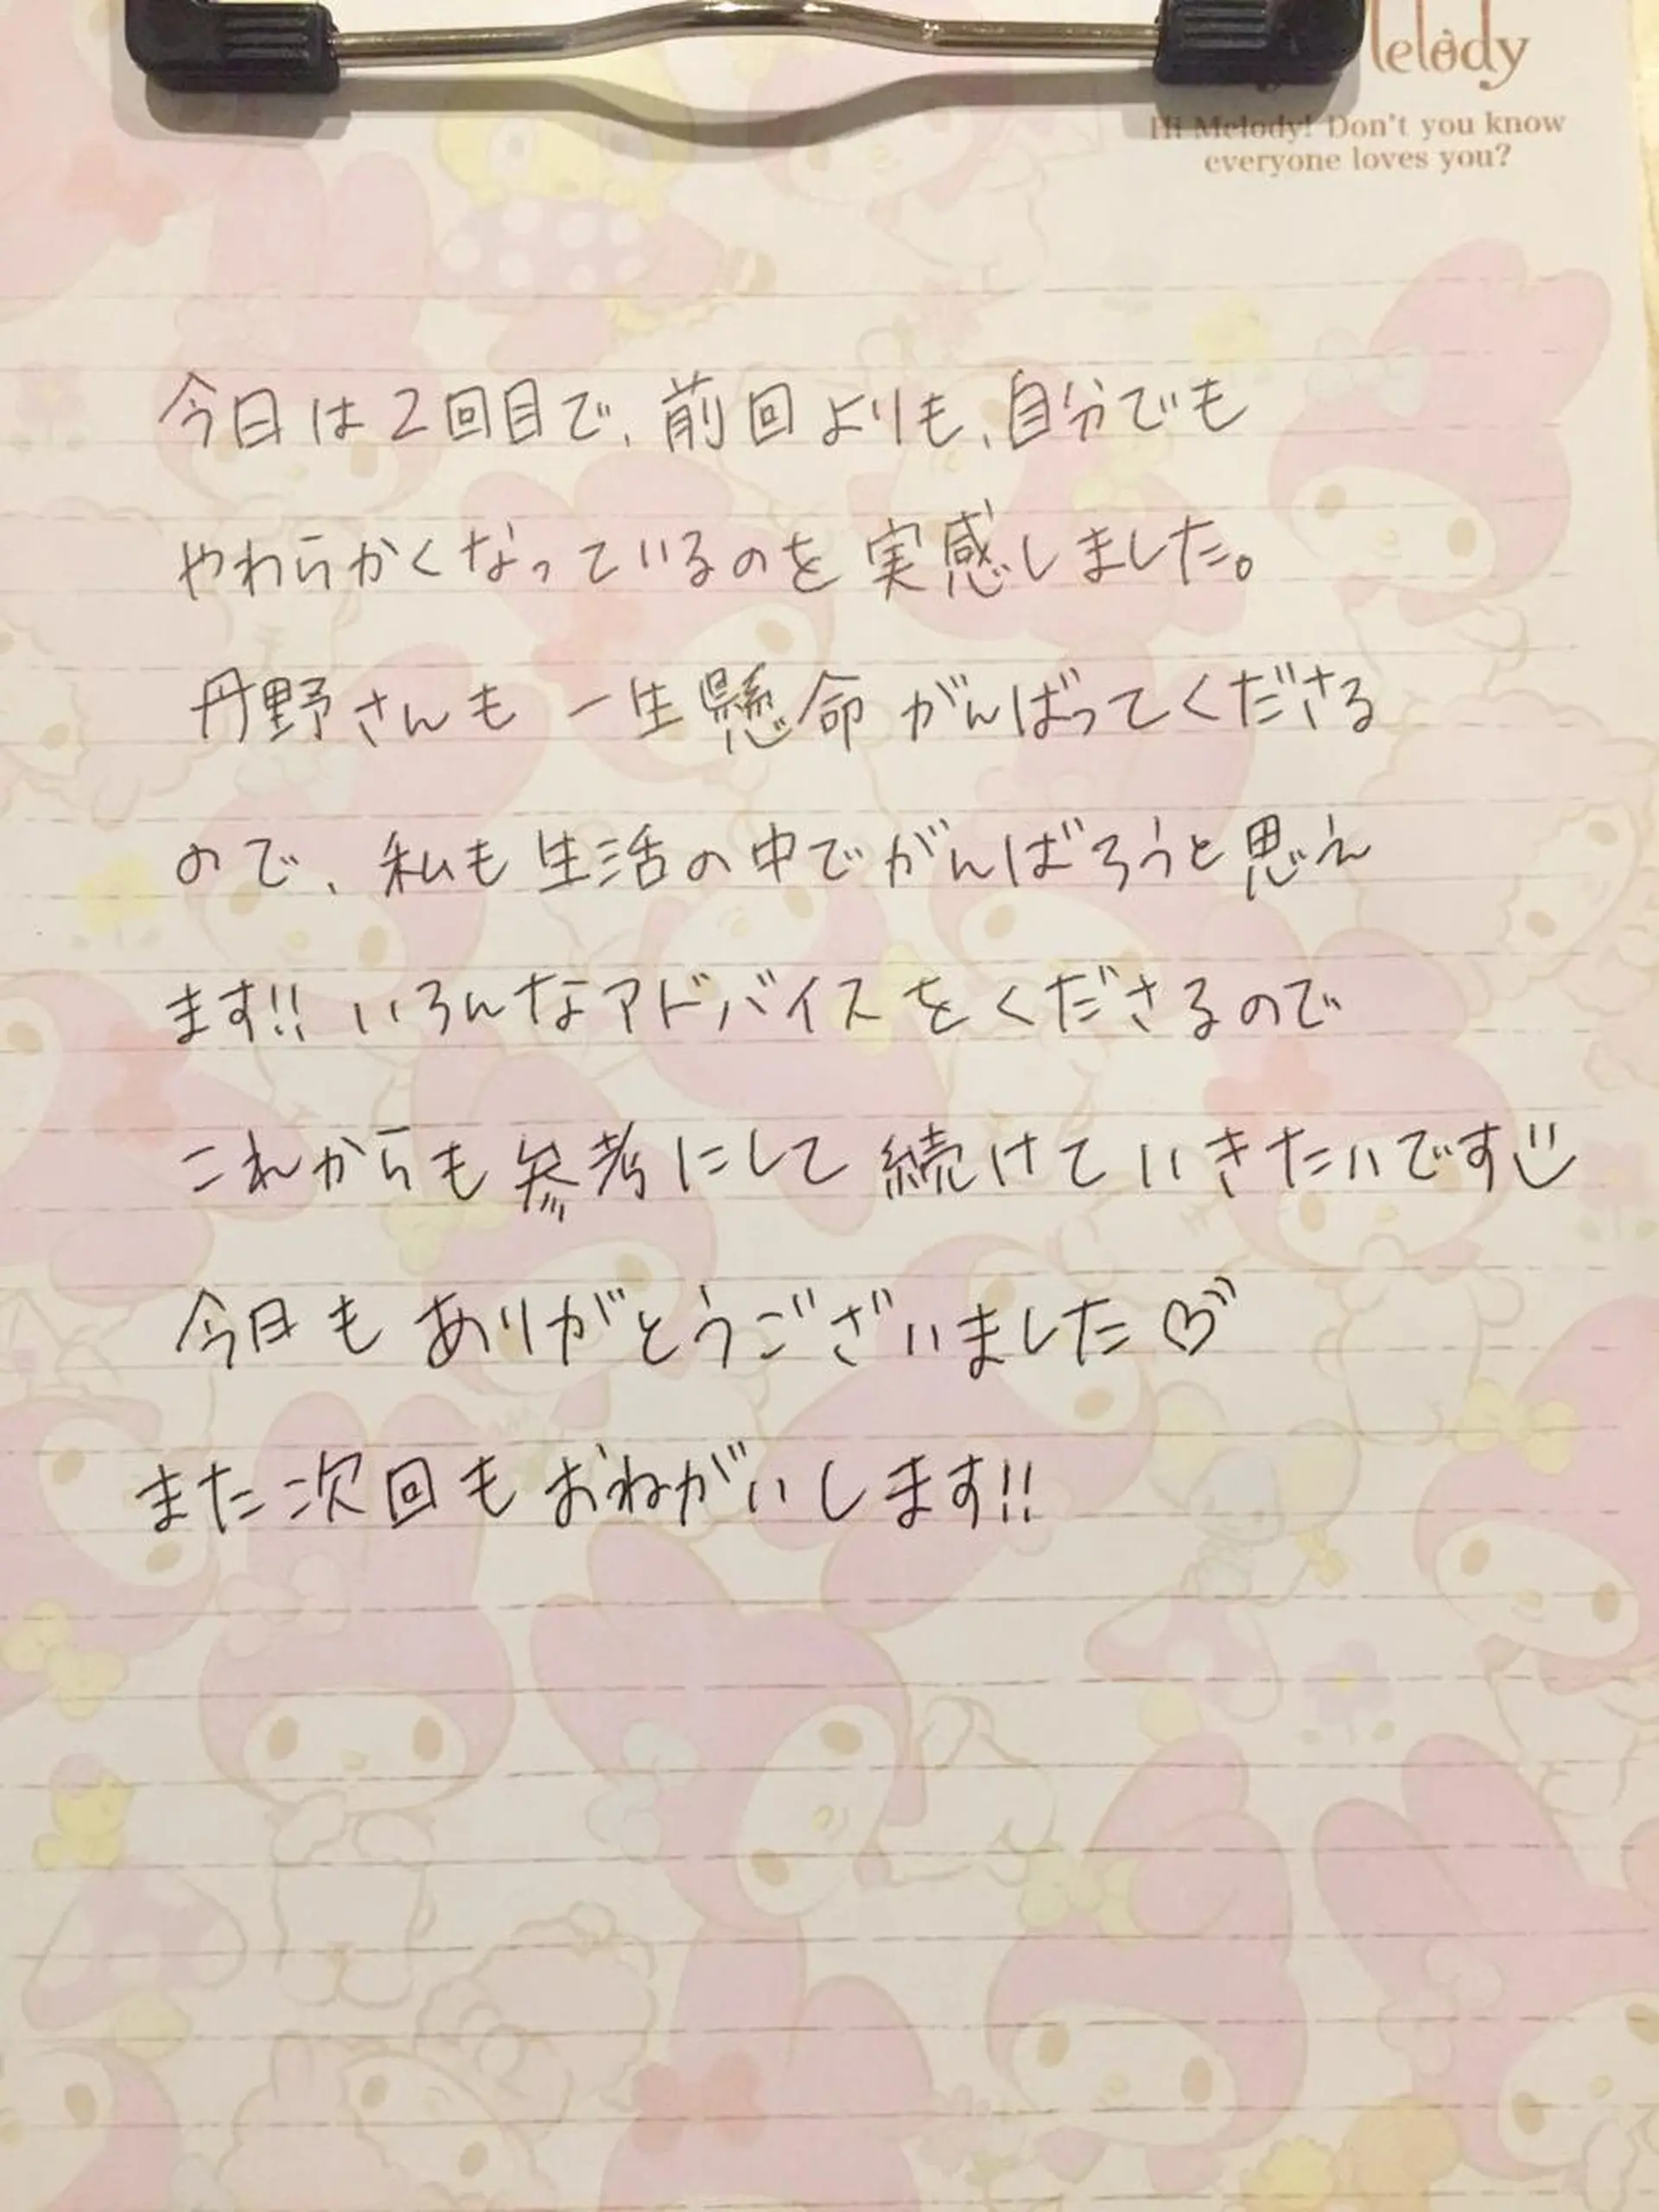 Melody
Hi Melody! Don't you know
everyone loves you?
今日は2回目で、前回よりも、自分でも
やわらかくなっているのを実感しました。
丹野さんも一生懸命がんばってくださる
ので、私も生活の中でがんばろうと思え
ます!! いろんなアドバイスをくださるので
これからも参考にして続けていきたいです
今日もありがとうございました♡
また次回もおねがいします!!